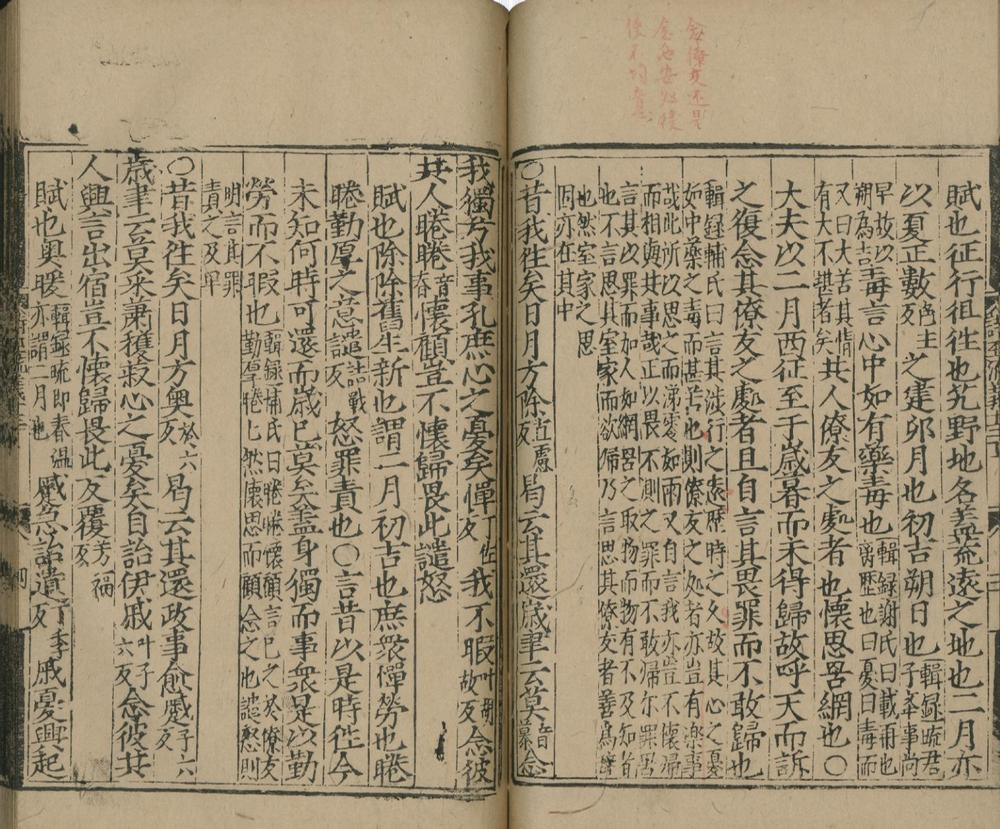 賦也征行徂往也艽野地名蓋荒遠之地也二月亦
以夏正數色主之建卯月也初吉朔日也輯録疏君子舉事尚
早故以朔為吉毒言心中如有藥毒也輯録謝氏曰載甫也離歴也曰憂曰毒而
又曰大苦其情有大不堪者矣共人僚友之處者也懷思罟網也○
大夫以二月西征至于歲暮而未得歸故呼天而訴
之復念其僚友之處者且自言其畏罪而不敢歸也
輯録輔氏曰言其渉行之遠歴時之久故其心之憂
如中藥之毒而甚苦也則僚友之处者亦豈有樂事
哉此所以思之而涕零如雨又自言我亦豈不懷歸
而相與共事哉正以畏不測之罪而不敢歸尔罪罟
言其以罪而加人如網罟之取物而物有不及知者
也不言思其室家而欲歸乃言思其僚友者善為辭
也然室家之思
固亦在其中
○昔我往矣日月方除直慮反曷云其還歲聿云莫音慕念
我獨兮我事孔庶心之憂矣憚丁佐反我不暇叶胡故反念彼
共人睠睠音眷懷顧豈不懷歸畏此譴怒
賦也除除舊生新也謂二月初吉也庶衆憚勞也睠
睠勤厚之意譴詰戰反怒罪責也○言昔以是時徃今
未知何時可還而歲已莫矣蓋身獨而事衆是以勤
勞而不暇也輯録輔氏曰睠睠懷顧言已之於僚友
勤厚睠七然懷思而顧念之也譴怒則
明言即罪
責之及早
○昔我往矣日月方奧於六反曷云其還政事愈蹙子六反
歲聿云莫采蕭穫菽心之憂矣自詒伊戚叶子六反念彼共
人興言出宿豈不懷歸畏此反覆芳福反
賦也奥暖輯録疏即春溫亦謂二月也蹙急詒遺唯季反戚憂興起